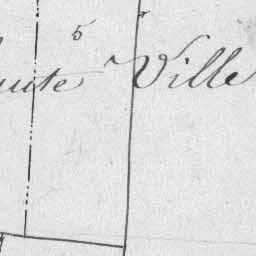 5
aute Ville